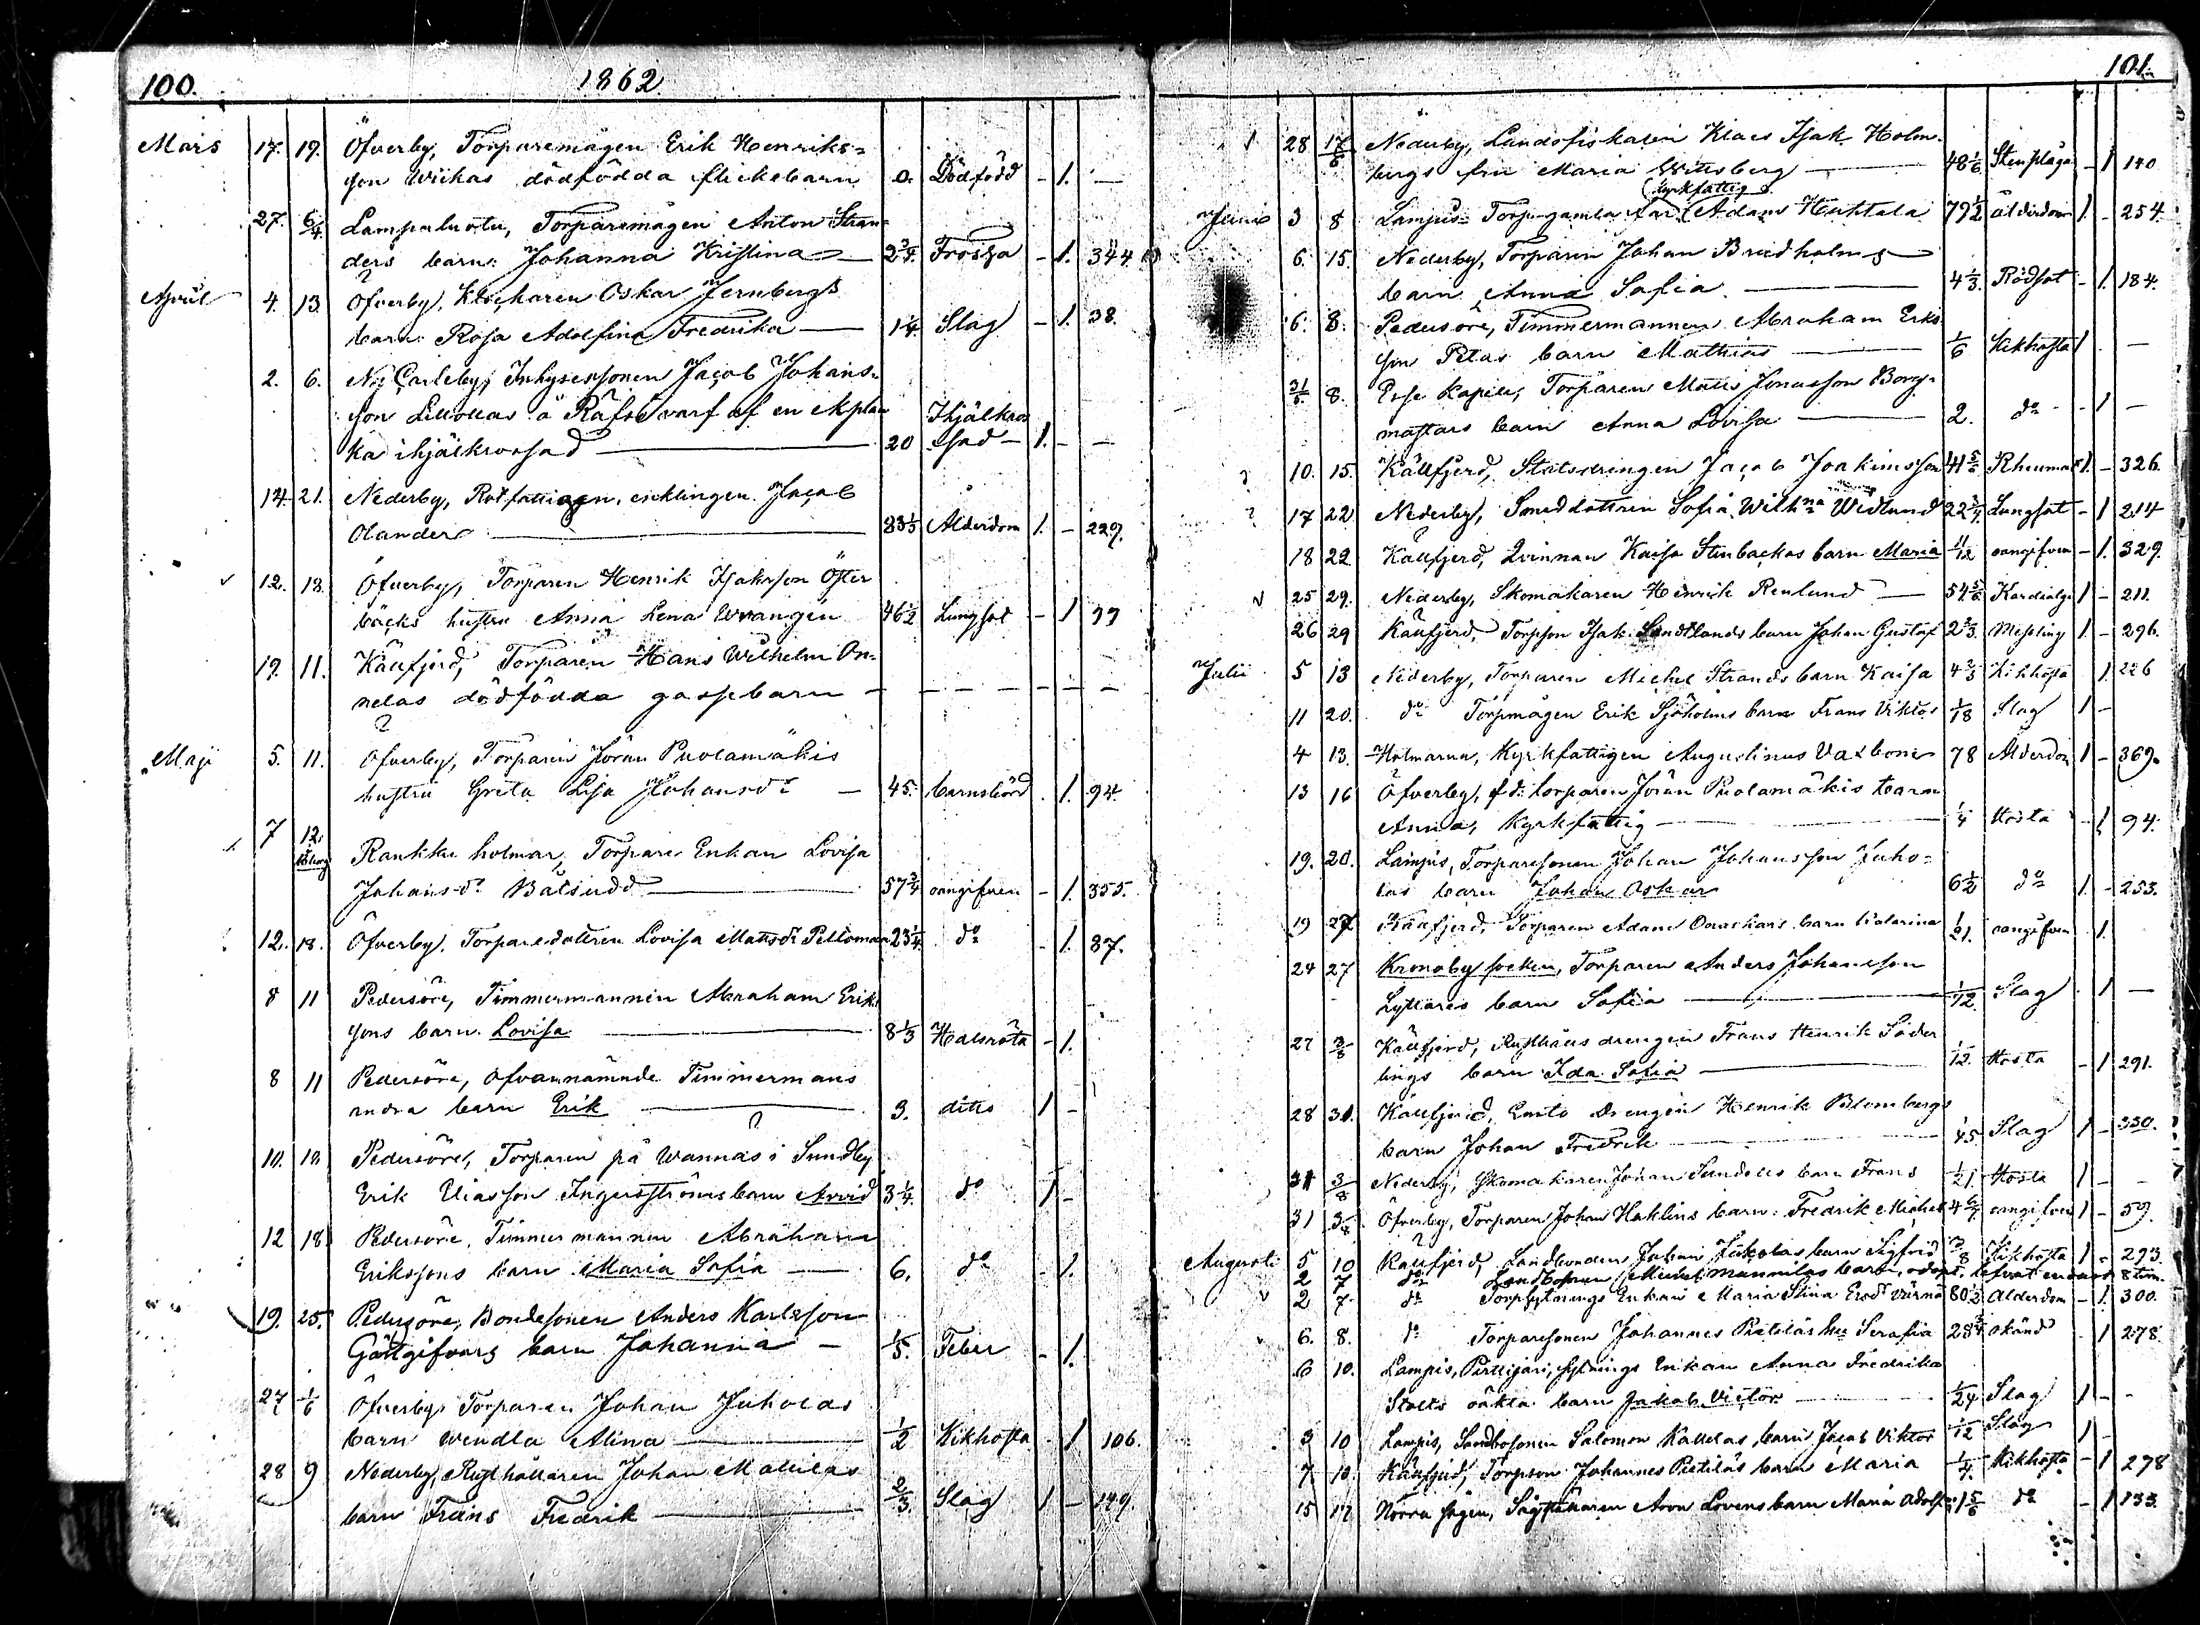 100.
1862
Mars 17. 19. Öfverby, Torparemågen Erik Henriks=
son Wiikas dödfödda flickebarn 0. Dödfödd - 1. —
27. 6/4. Torparemågen Anton Stran=
ders barn: Johanna Kristina — 2 3/4. Frossa - 1. 344.
April 4. 13. Öfverby, Oskar Jernbergs
barn: Rosa Adolfina Fredrika — 1 1/4 Slag - 1. 38.
2. 6. Ny Carleby, Inhysessonen Jacob Johans=
son å varf af en ekplan
ka ihjälkrossad — 20 Ihjälkros
sad - 1. - —
14. 21. Nederby, Jacob
Olander — 83 1/3 Ålderdom 1. - 229.
12. 18. Öfverby, Torparen Henrik Isaksson Öster
bäcks hustru Anna Lena Wrangén 46 1/2 Lungsot - 1 99
19. 11. Källfjerd, Torparen Hans Wilhelm On=
nelas dödfödda gossebarn — — — — — —
Maji 5. 11. Öfverby, Torparen Jöran Puolamäkis
hustru Greta Lisa Johansdr — 45. barnsbörd . 1. 94.
7 12. holmar, Torpare Enkan Lovisa
Johansdr Båtsudd — 57 3/4 oangifven - 1. 355.
12. 18. Öfverby, Torparedottren Lovisa Mattsdr 23 1/4 do - 1. 87.
8 11 Pedersöre, Timmermannen Abraham Erik
sons barn Lovisa — 8 1/3 Halsröta - 1.
8 11 Pedersöre, Ofvannämnde Timmermans
andra barn Erik — 3. ditto 1 -
10. 18 Pedersöre, Torparen på Wannäs i Sundby
Erik Eliasson barn Arvid 3 1/4. do 1 -
12 18 Pedersöre, Timmermannen Abraham
Erikssons barn Maria Sofia — 6. do - 1.
19. 25. Pedersöre, Bondesonen Anders Karlsson
Gästgifvars barn Johanna — 1/5. Feber - 1.
27 1/6 Öfverby, Torparen Johan Juholas
barn Wendla Alina — 1/2 Kikhosta - 1 106.
28 9 Nederby, Rusthållaren Johan Mattilas
barn Frans Fredrik — 2/3. Slag 1 - 149.
101.
28 17/6 Nederby, Landsfiskalen Klaes Isak Holm=
bergs fru Maria Wittsberg — 48 1/6 Stenplåga - 1 140
kyrkfattig
Junii 3 8 Adam Huhtala 79 1/2 ålderdom 1. - 254.
6. 15. Nederby, Torparen Johan Bredholms
barn Anna Sofia. — 4 2/3. Rödsot - 1. 184.
6. 8. Pedersöre, Timmermannen Abraham Eriks
son barn Mathias — 1/6 Kikhosta 1 . —
31/5. 8. Esse kapell, Torparen Matts Jonasson Borg=
mastars barn Anna Lovisa — 2. do - 1 —
10. 15. Källfjerd, Statsdrengen Jacob Joakimsson 41 5/6 Rheumat 1. - 326.
17 22 Nederby, Smeddottren Sofia Wilhna Widlund 22 3/4 Lungsot - 1 214
18 22 Källfjerd, Qvinnan Kaisa Stenbackas barn Maria 11/12 oangifven - 1. 329.
25 29. Nederby, Skomakaren Henrik Renlund — 54 5/6 Kardialgi 1 - 211.
26 29 Källfjerd, Torpson Isak barn Johan Gustaf 2 2/3. Messling 1. - 296.
Julii 5 13 Nederby, Torparen Michel Strands barn Kaisa 4 2/3 Kikhosta 1 226
11 20. do Torpmågen Erik Sjöholms barn Frans Viktor 1/18 Slag 1 -
4 13. Holmarna, Kyrkfattigen Augustinus 78 Ålderdom 1 - 369.
13 16 Öfverby, f.d. torparen Jöran Puolamäkis barn
Anna, kyrkfattig — 1/4 Hosta - 1 94.
19. 20. Lampis, Torparesonen Johan Johansson Juho=
las barn Johan Oskar 6 1/2 do 1. - 253.
19 27 Källfjerd, Torparen Adam barn Katarina 1/21. oangifven 1.
24 27 Kronoby socken, Torparen Anders Johansson
barn Sofia — 1/12. Slag . 1 —
27 3/8 Källfjerd, Rusthålls drengen Frans Henrik Söder
lings barn Ida Sofia — 1/12. Hosta - 1 291.
28 31. Källfjerd, Drengen Henrik Blombergs
barn Johan Fredrik — 1/45 Slag 1 - 330.
31 3/8 Nederby, Skomakaren Johan barn Frans 1/21. Hosta 1 -
31 3/8. Öfverby, Torparen Johan Haklins barn: Fredrik Michel 4 6/7 oangifven 1 - 59.
Augusti 5 10 Källfjerd, Landbonden Johan Jäkolas barn Sigfrid 3/8 Kikhosta 1 - 293.
2 7 do Michel Mannilas barn, odöpt, lefvat endast 8 tim.
2 7 do Torpsytnings Enkan Maria Stina 80 1/2 Ålderdom - 1. 300.
6. 8. do Torparesonen Johannes Pietiläs hu Serafia 28 3/4 okänd - 1 278.
6 10. Lampis, sytnings Enkan Anna Fredrika
oäkta barn Jakob Victor — 1/24 Slag 1 - -
3 10 Lampis, Landbosonen Salomon Kallelas barn Jacob Viktor 1/12 Slag 1 -
7 10. Källfjerd, Torpson Johannes Pietiläs barn Maria 1/4. Kikhosta - 1 278
15 17 Norra sågen, Aron Lovens barn Maria Adolf. 1 5/6 do - 1 133.